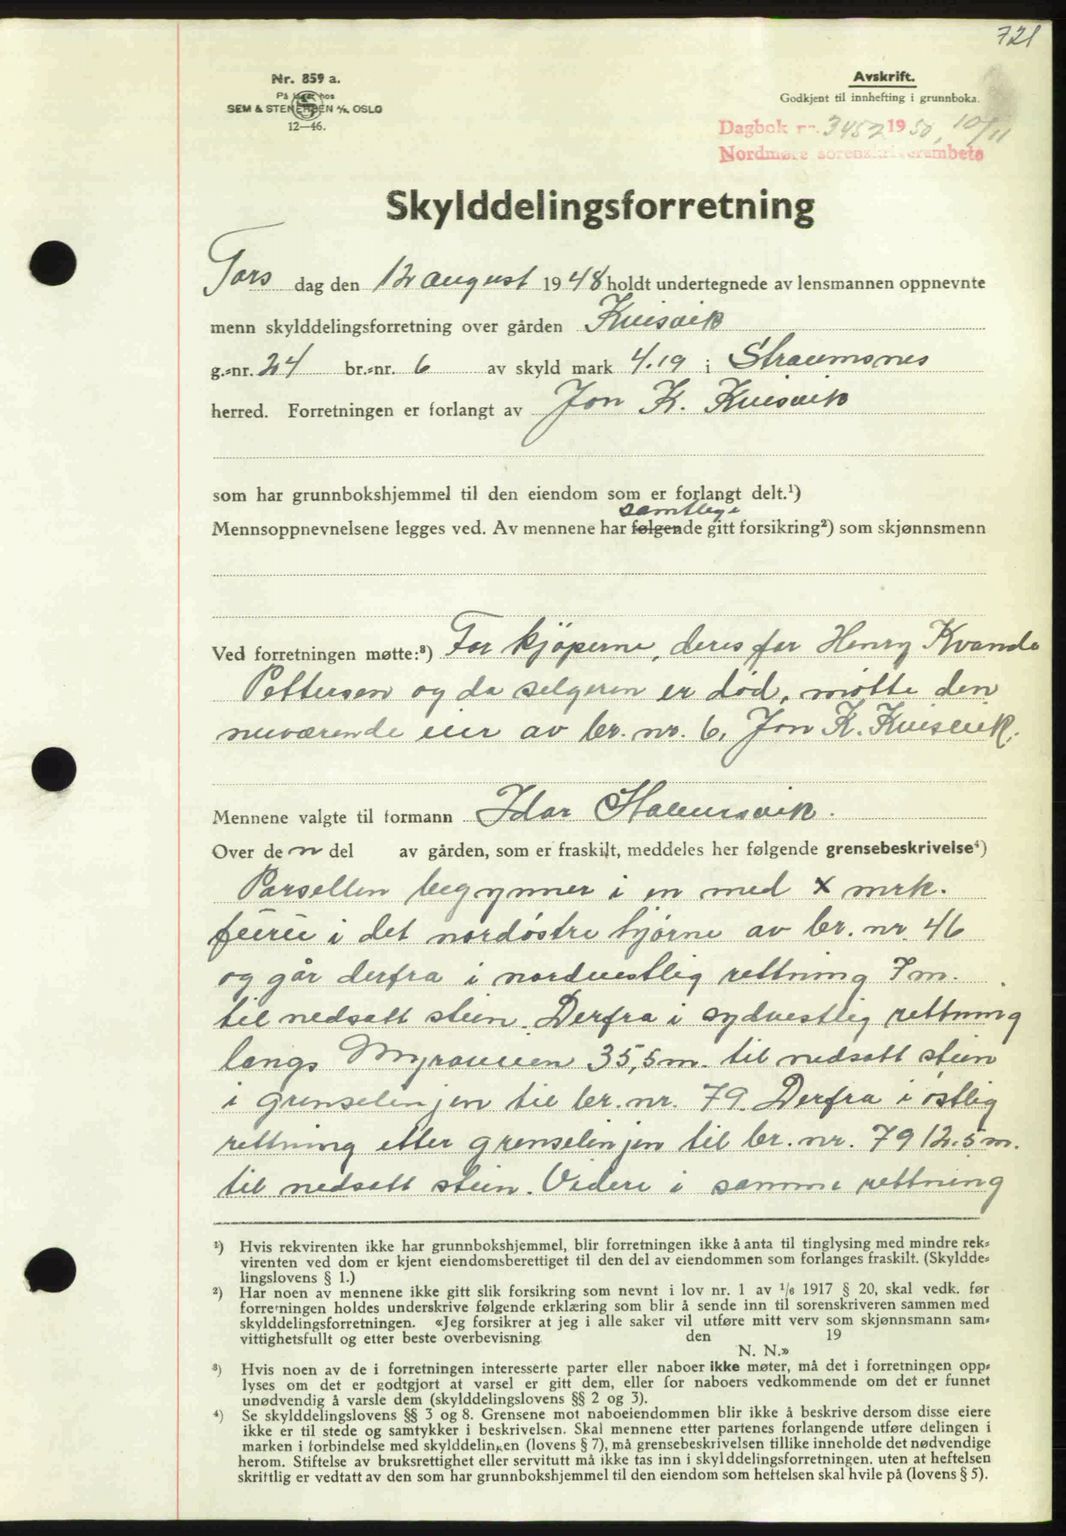 721
Nr. 859 a.
På lager hos
SEM & STENERSEN A/S, OSLO
12—46.
Avskrift.
Godkjent til innhefting i grunnboka.
Dagbok nr. 3452 1950, 10/11
Nordmøre sorenskriverembete
Skylddelingsforretning
Tors dag den 12 august 1948 holdt undertegnede av lensmannen oppnevnte
menn skylddelingsforretning over gården Kvisvik
g.-nr. 24 br.-nr. 6 av skyld mark 4.19 i Straumsnes
herred. Forretningen er forlangt av Jon K. Kvisvik
som har grunnbokshjemmel til den eiendom som er forlangt delt.¹)
samtlige
Mennsoppnevnelsene legges ved. Av mennene har følgende gitt forsikring²) som skjønnsmenn
Ved forretningen møtte:³) For kjøperne, deres far Henry Kvande
Pettersen og da selgeren er død, møtte den
nuværende eier av br. nr. 6, Jon K. Kvisvik.
Mennene valgte til formann Idar Halvorsvik.
Over den del av gården, som er fraskilt, meddeles her følgende grensebeskrivelse⁴)
Parsellen begynner i en med x mrk.
furu i det nordøstre hjørne av br. nr. 46
og går derfra i nordvestlig rettning 7 m.
til nedsatt stein. Derfra i sydvestlig rettning
langs Myraveien 35,5 m. til nedsatt stein
i grenselinjen til br. nr. 79. Derfra i østlig
rettning etter grenselinjen til br. nr. 79 12.5 m.
til nedsatt stein. Videre i samme rettning
¹) Hvis rekvirenten ikke har grunnbokshjemmel, blir forretningen ikke å anta til tinglysing med mindre rek-
virenten ved dom er kjent eiendomsberettiget til den del av eiendommen som forlanges fraskilt. (Skyldde-
lingslovens § 1.)
²) Har noen av mennene ikke gitt slik forsikring som nevnt i lov nr. 1 av 1/6 1917 § 20, skal vedk. før
forretningen holdes underskrive følgende erklæring som blir å sende inn til sorenskriveren sammen med
skylddelingsforretningen. «Jeg forsikrer at jeg i alle saker vil utføre mitt verv som skjønnsmann sam-
vittighetsfullt og etter beste overbevisning den 19
N. N.»
³) Hvis noen av de i forretningen interesserte parter eller naboer ikke møter, må det i forretningen opp-
lyses om det er godtgjort at varsel er gitt dem, eller for naboers vedkommende om det er funnet
unødvendig å varsle dem (skylddelingslovens §§ 2 og 3).
⁴) Se skylddelingslovens §§ 3 og 8. Grensene mot naboeiendommen blir ikke å beskrive dersom disse eiere
ikke er til stede og samtykker i beskrivelsen. Skal mennene etter partenes forlangende utføre delingen i
marken i forbindelse med skylddelingen (lovens § 7), må grensebeskrivelsen tillike inneholde det nødvendige
herom. Stiftelse av bruksrettighet eller servitutt må ikke tas inn i skylddelingsforretningen, uten at heftelsen
skriftlig er vedtatt av den som har grunnbokshjemmel til den eiendom som heftelsen skal hvile på (lovens § 5).